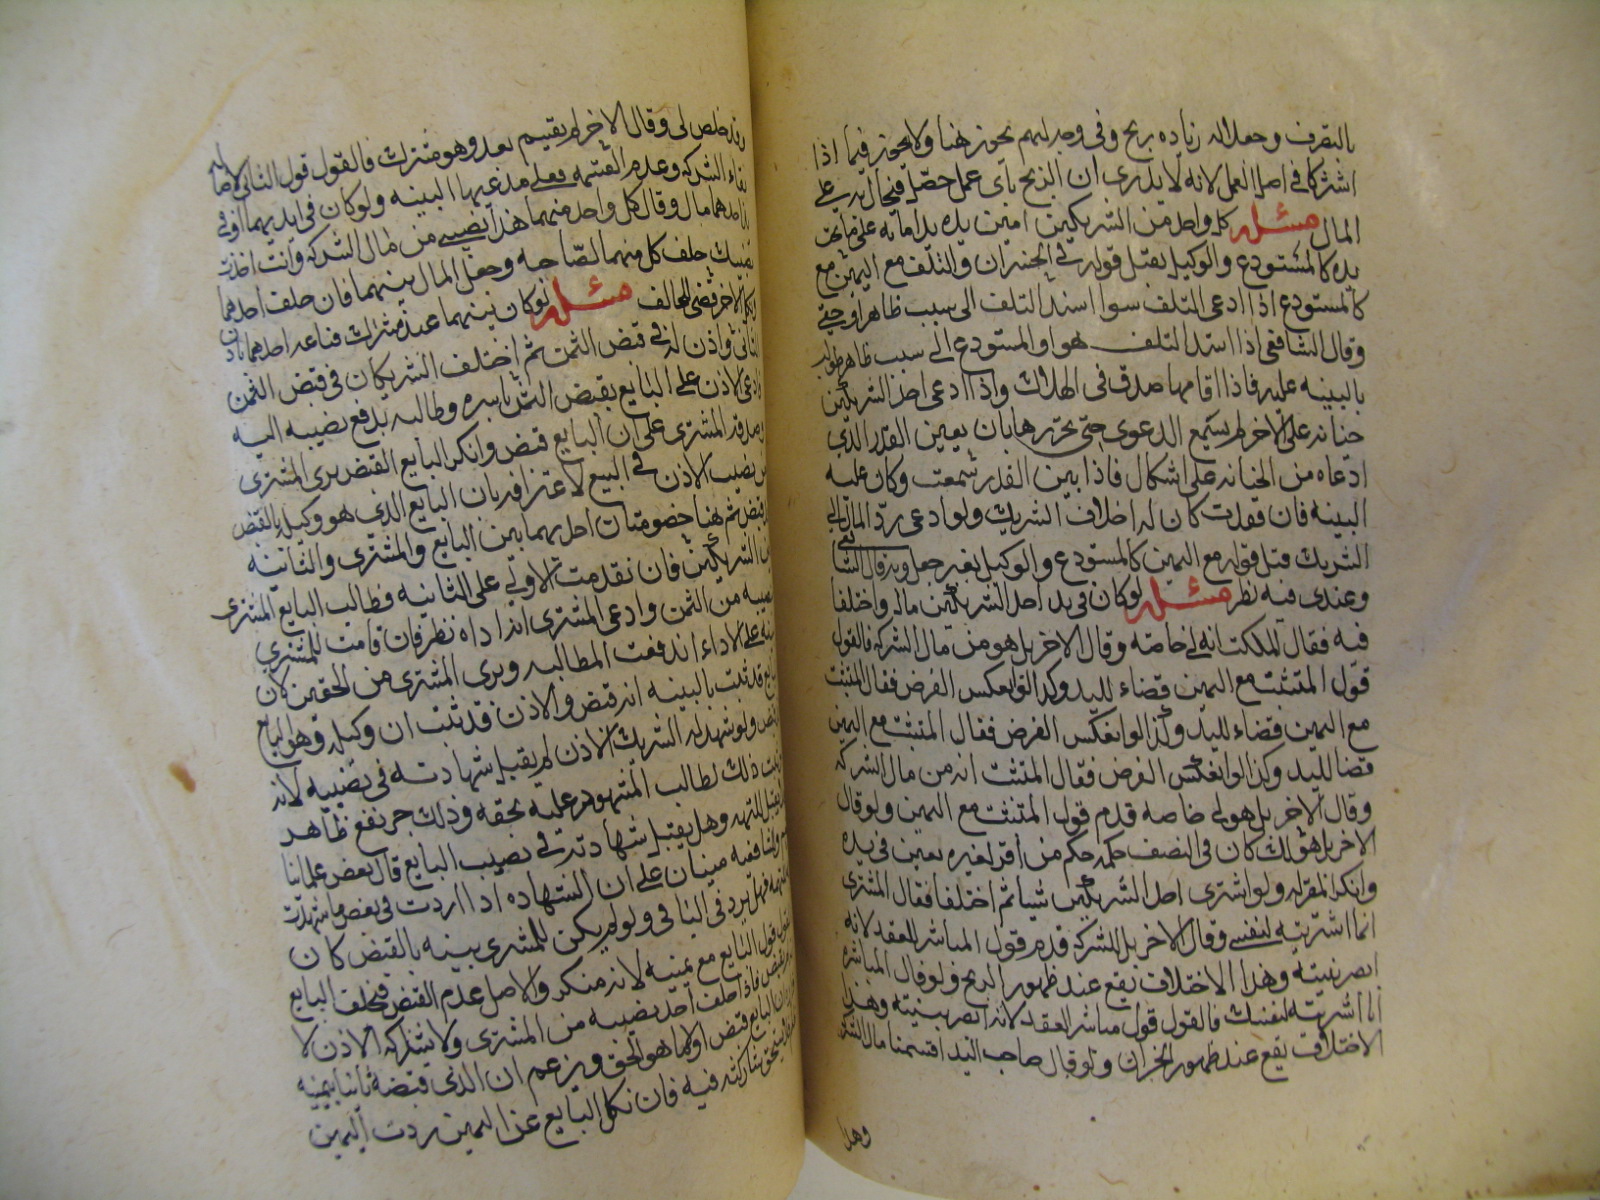 بالتصرف وجعلا له زياده ربح وفي وجه لهم يجوز هنا ولا يجوز فيما اذا
اشتركا في اصل العمل لانه لا يدرى ان الربح باى عمل حصل فيحال به على
المال مسئله كل واحد من الشريكين امين يده يد امانه على ما تحت
يده كالمستودع والوكيل يقبل قوله في الخسران والتلف مع اليمين
كالمستودع اذا ادعى التلف سوا اسند التلف الى سبب ظاهر او خفى
وقال الشافعى اذا اسند التلف هو او المستودع الى سبب ظاهر طولب
بالبينه عليه فاذا اقامها صدق فى الهلاك واذا ادعى احد الشريكين
خيانه على الاخر لم تسمع الدعوى حتى يحررها بان يعين القدر الذى
ادعاه من الخيانه على اشكال فاذا بين القدر سمعت وكان عليه
البينه فان فقدت كان له احلاف الشريك ولو ادعى رد المال الى
الشريك قبل قوله مع اليمين كالمستودع والوكيل بغير جعل وبه قال الشافعى
وعندى فيه نظر مسئله لو كان في يد احد الشريكين مال واختلفا
فيه فقال المتشبث انه لى خاصه وقال الاخر بل هو من مال الشركه فالقول
قول المتشبث مع اليمين قضاء لليد وكذا لو انعكس الفرض فقال المتشبث
مع اليمين قضاء لليد وكذا لو انعكس الفرض فقال المتشبث مع اليمين
قضا لليد وكذا لو انعكس الفرض فقال المتشبث انه من مال الشركه
وقال الاخر بل هو لى خاصه قدم قول المتشبث مع اليمين ولو قال
الاخر بل هو لك كان في النصف حكمه حكم من اقر لغيره بعين في يده
وانكر المقر له ولو اشترى احد الشريكين شيئا ثم اختلفا فقال المشترى
انما اشتريته لنفسى وقال الاخر بل للشركه قدم قول المباشر للعقد لانه
ابصر بنيته وهذا الاختلاف يقع عند ظهور الربح ولو قال المباشر
اشتريته لنفسك فالقول قول مباشر العقد لانه ابصر بنيته وهذا
الاختلاف يقع عند ظهور الخسران ولو قال صاحب اليد اقتسمنا مال الشركه
وهذا
وقد خلص لى وقال الاخر لم يقتسم بعد وهو مشترك فالقول قول الثانى لاصاله
بقاء الشركه وعدم القسمه فعلى مدعيها البينه ولو كان في ايديهما او في
يد احدهما مال وقال كل واحد منهما هذا نصيبى من مال الشركه وانت اخذت
نصيبك حلف كل منهما لصاحبه وجعل المال بينهما فان حلف احدهما
ونكل الاخر قضى للحالف مسئله لو كان بينهما عبد مشترك فباعه احدهما باذن
الثانى واذن له في قبض الثمن ثم اختلف الشريكان في قبض الثمن
فادعى الاذن على البايع بقبض الثمن باسره وطالبه بدفع نصيبه اليه
وصدقه المشترى على ان البايع قبض وانكر البايع القبض برى المشترى
من نصيب الاذن في البيع لاعترافه بان البايع الذى هو وكيله بالقبض
قبض ثم هنا خصومتان احديهما بين البايع والمشترى والثانيه
بين الشريكين فان تقدمت الاولى على الثانيه فطالب البايع المشترى
نصيبه من الثمن وادعى المشترى انه اداه نظر فان قامت للمشترى
بينه على الاداء اندفعت المطالبه وبرى المشترى من الحقين
قد ثبت بالبينه انه قبض والاذن قد ثبت ان وكيله وهو البايع
قبض ولو شهد له الشريك الاذن لم يقبل شهادته في نصيبه لانه
لو ثبت ذلك لطالب المشهود عليه بحقه وذلك جر نفع ظاهر
وهل يقبل شهادته في نصيب البايع قال بعض علمائنا
مبنيان على ان الشهاده اذا ردت في بعض ما شهدت
فهل ترد في الباقى ولو لم يكن للمشترى بينه بالقبض كان
القول قول البايع مع يمينه لانه منكر والاصل عدم القبض فيحلف البايع
فاذا حلف اخذ نصيبه من المشترى ولا يشاركه الاذن لا
البايع قبض اولا ما هو الحق ويزعم ان الذى قبضه ثانيا بيمينه
فلا يستحق مشاركته فيه فان نكل البايع عن اليمين ردت اليمين